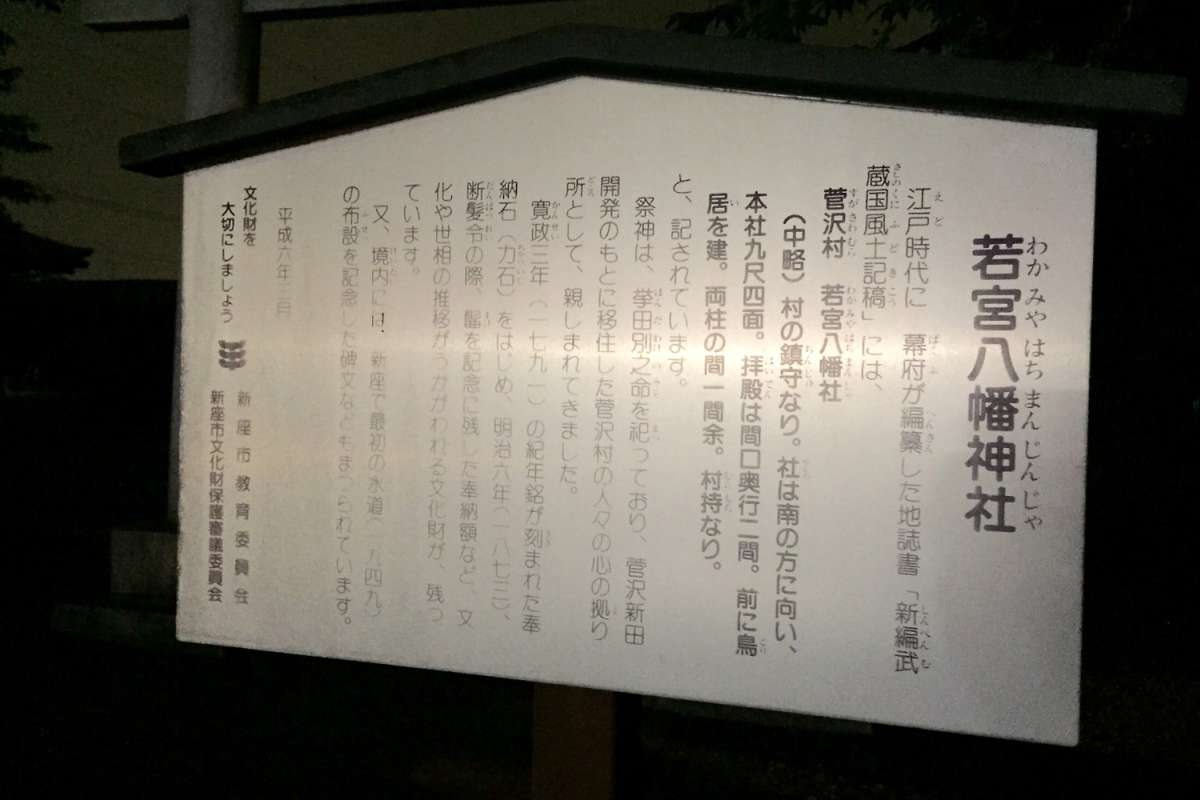 若宮八幡神社
わか みや はち まん じん じゃ
江戸時代に 幕府が編纂した地誌書「新編武
蔵国風土記稿」には、
菅沢村 若宮八幡社
(中略)村の鎮守なり。社は南の方に向い、
本社九尺四面。拝殿は間口奥行二間。前に鳥
居を建。両柱の間一間余。村持なり。
と、記されています。
祭神は、挙田別之命を祀っており、菅沢新田
開発のもとに移住した菅沢村の人々の心の拠り
所として、親しまれてきました。
寛政三年(一七九一)の紀年銘が刻まれた奉
納石(力石)をはじめ、明治六年(一八七三)、
断髪令の際、髷を記念に残した奉納額など、文
化や世相の推移がうかがわれる文化財が、残っ
ています。
又、境内には、新座で最初の水道(一九四九)
の布設を記念した碑文などもまつられています。
平成六年 月
文化財を
大切にしましょう
新座市教育委員会
新座市文化財保護審議委員会